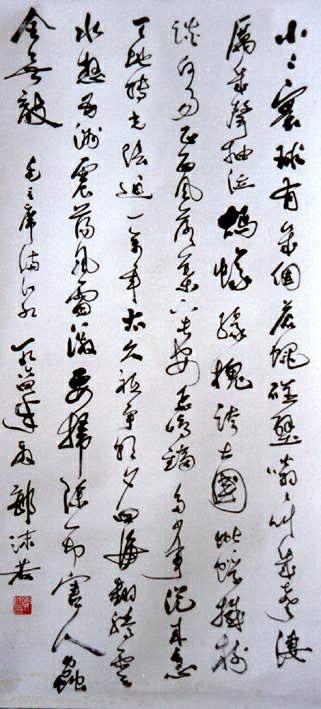 小〻寰球有幾個蒼蠅碰壁嗡〻叫幾聲淒
厲幾聲抽泣螞蟻緣槐誇大國蚍蜉撼樹
談何易正西風落葉下長安飛鳴鏑多少事從來急
天地轉光陰迫一萬年太久祇爭朝夕四海翻騰雲
水怒五洲震蕩風雷激要掃除一切害人蟲
全無敵 毛主席滿江紅 一九六 年 郭沫若